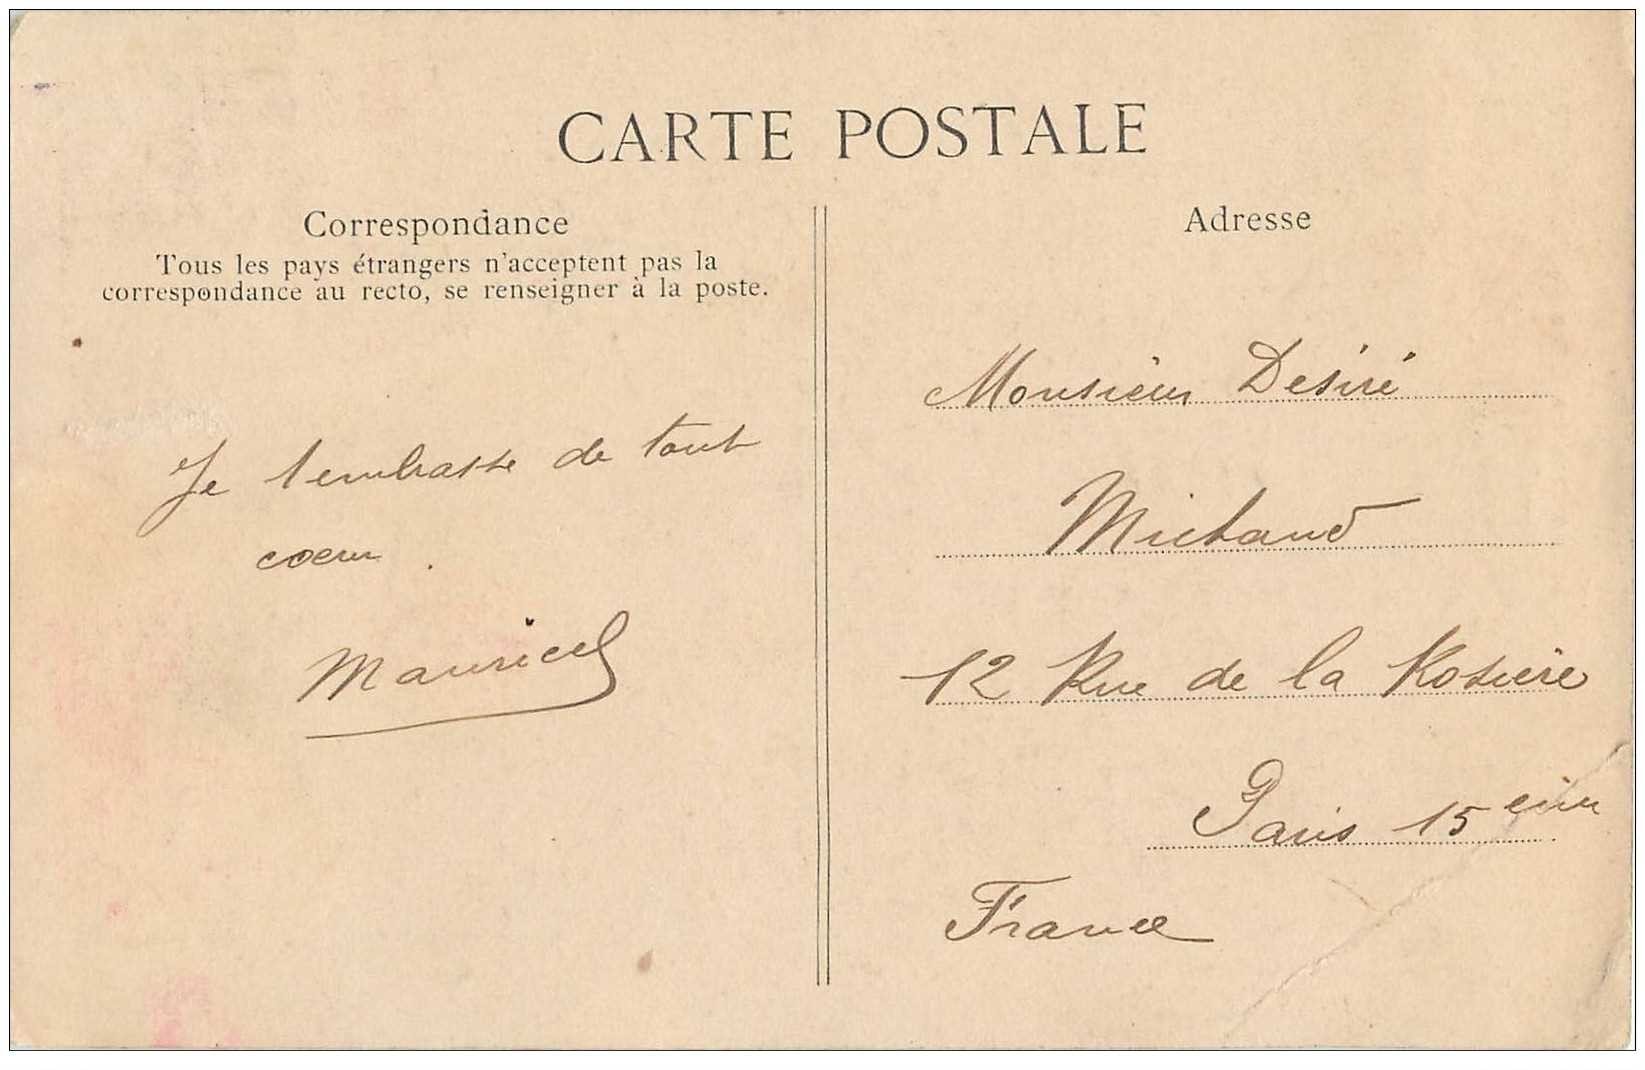 CARTE POSTALE
Correspondance
Tous les pays étrangers n'acceptent pas la
correspondance au recto, se renseigner à la poste.
Je t'embrasse de tout
coeur.
Maurice
Adresse
Monsieur Désiré
Michaud
12 Rue de la Rosière
Paris 15 eme
France